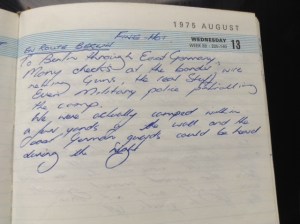 1975 AUGUST
WEDNESDAY
13
Fine Hot
En Route Berlin
To Berlin through East Germany
Many checks at the border, wire
netting, Guns, the real stuff.
Even Military police patrolling
the camp.
We were actually camped within
a few yards of the wall and the
East German guards could be heard
during the Night